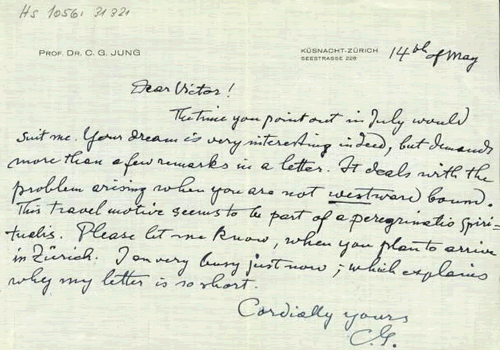 Hs 1056: 31321
PROF. DR. C. G. JUNG
KÜSNACHT-ZÜRICH
SEESTRASSE 228
14th of May
Dear Victor!
The time you point out in July would
suit me. Your dream is very interesting indeed, but demands
more than a few remarks in a letter. It deals with the
problem arising when you are not westward bound.
This travel motive seems to be part of a peregrinatio spiri-
tualis. Please let me know, when you plan to arrive
in Zürich. I am very busy just now; which explains
why my letter is so short.
Cordially yours
C.G.